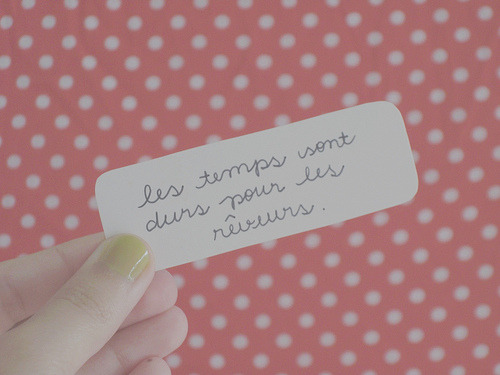 les temps sont
durs pour les
rêveurs.